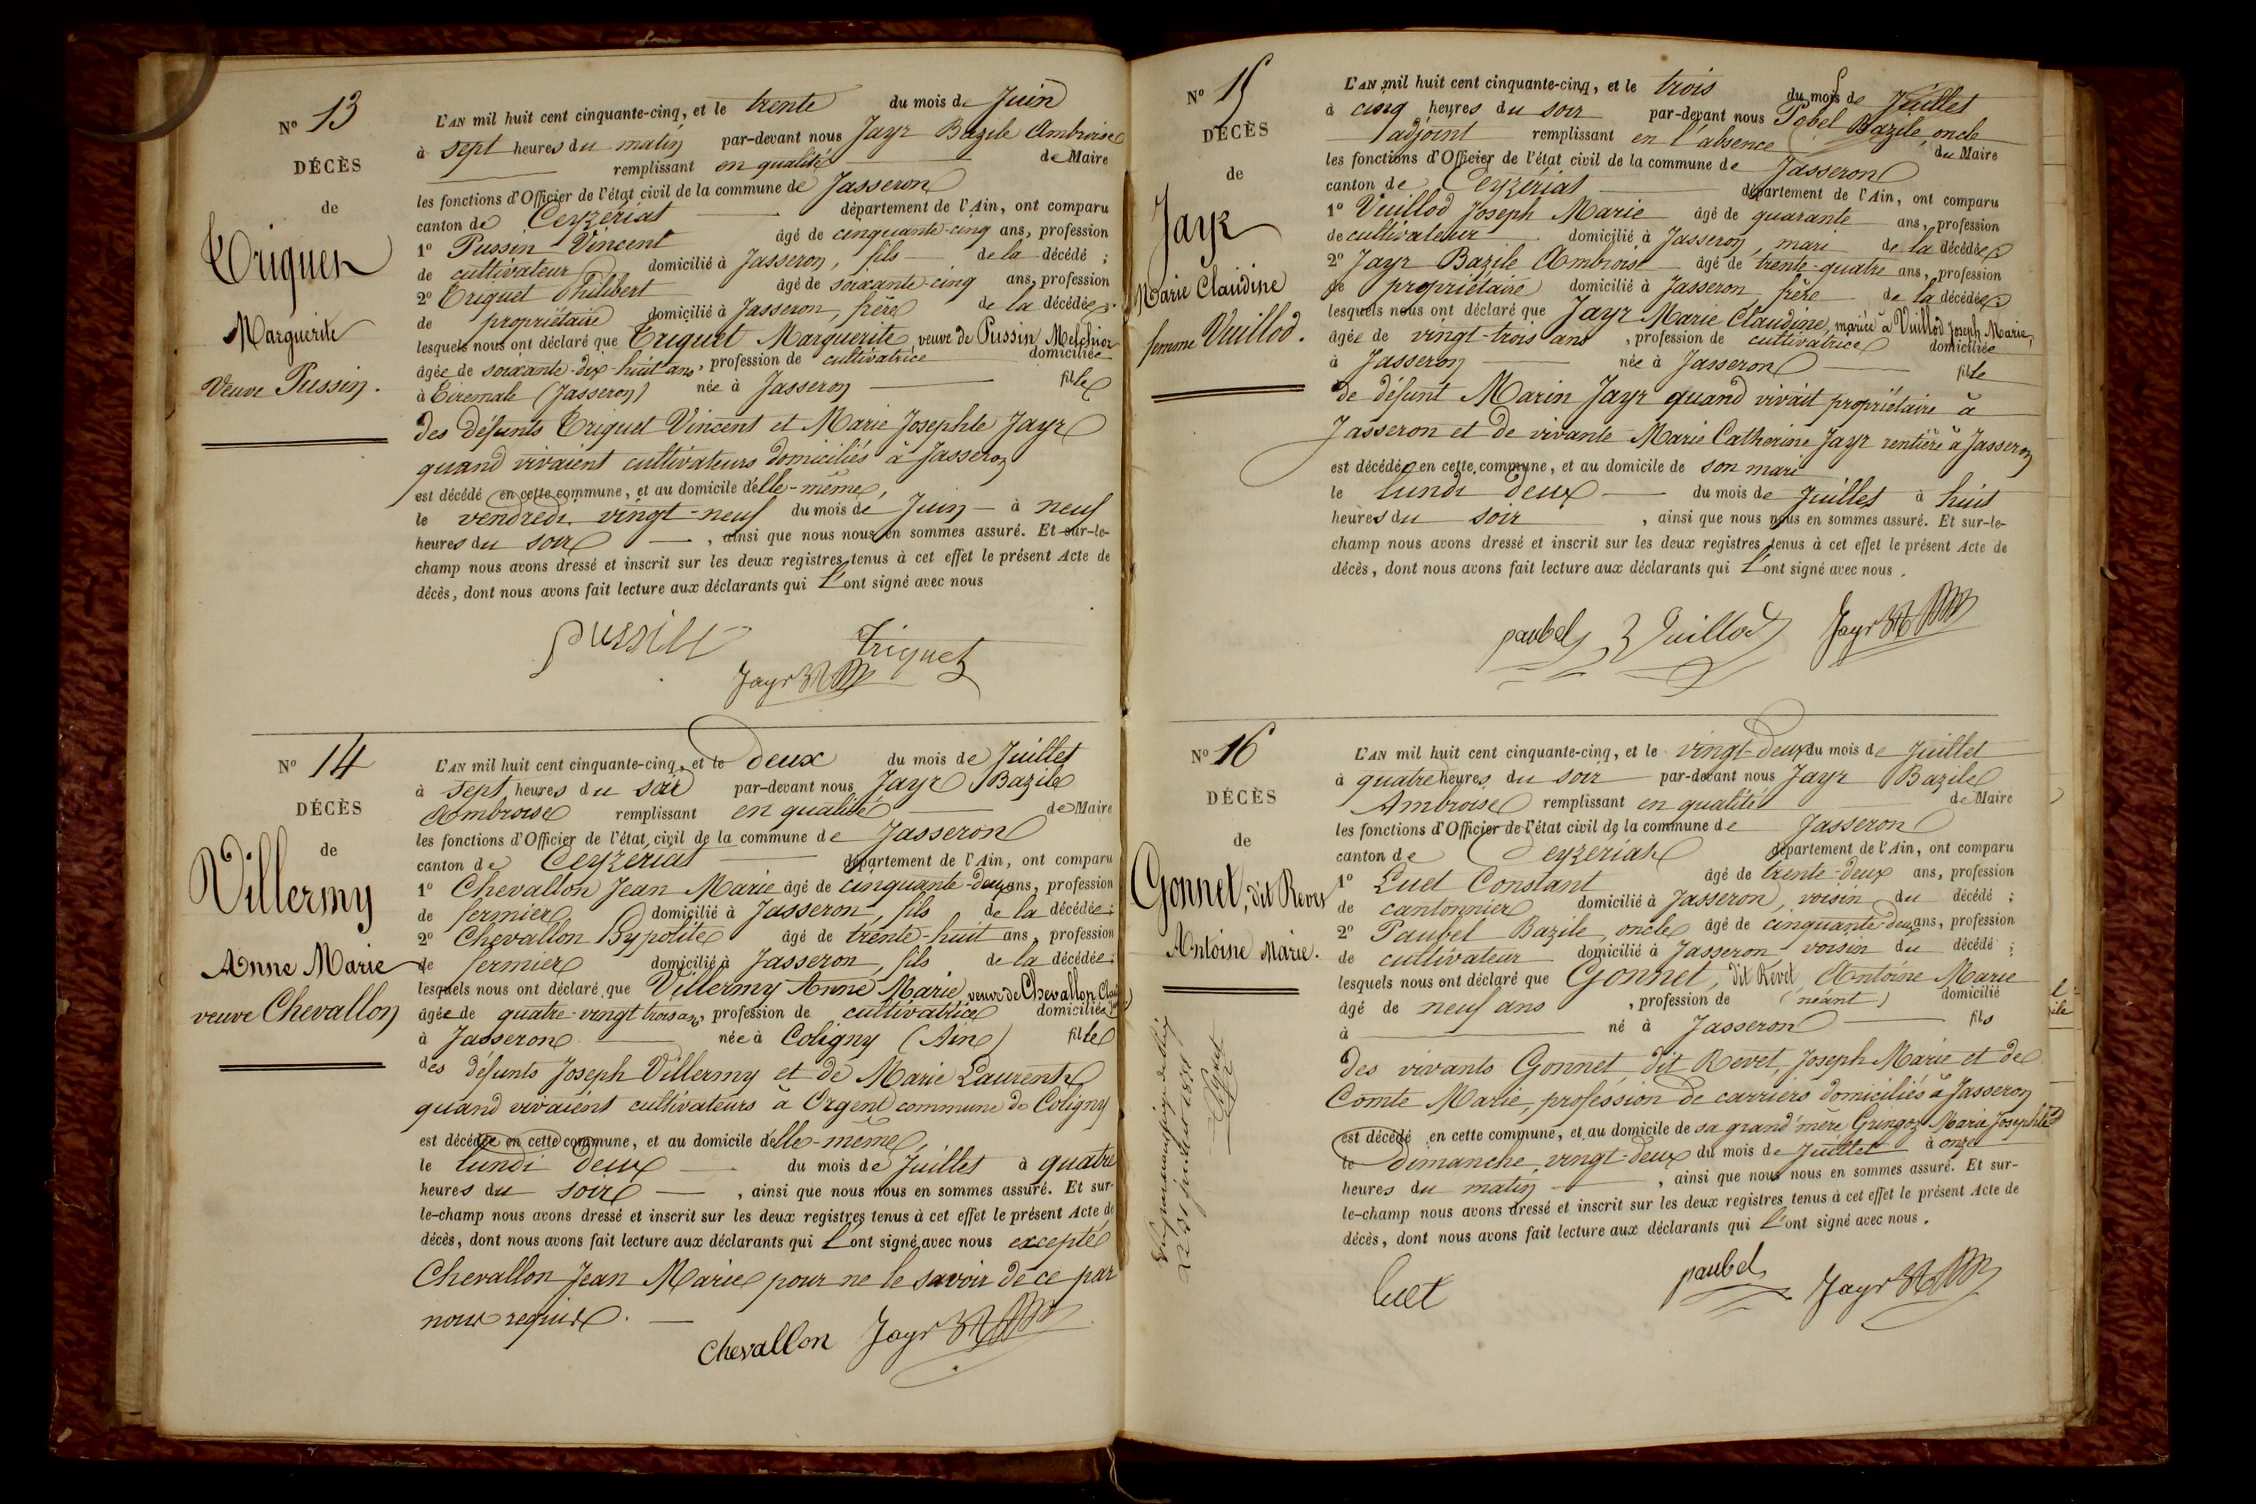 N° 13
DÉCÈS
de
Triquet
Marguerite
Veuve Pussin.
L'AN mil huit cent cinquante-cinq, et le trente du mois de Juin
à sept heures du matin par-devant nous Jayr Bazile Ambroise
remplissant en qualité de Maire
les fonctions d'Officier de l'état civil de la commune de Jasseron
canton de Ceyzériat département de l'Ain, ont comparu
1° Pussin Vincent âgé de cinquante-cinq ans, profession
de cultivateur domicilié à Jasseron, fils de la décédé ;
2° Triquet Philibert âgé de soixante-cinq ans, profession
de propriétaire domicilié à Jasseron, frère de la décédée.
lesquels nous ont déclaré que Triquet Marguerite, veuve de Pussin Melchior
âgée de soixante-dix-huit ans, profession de cultivatrice domiciliée
à Tiremale (Jasseron) née à Jasseron fille
des défunts Triquet Vincent et Marie Josephte Jayr
quand vivaient cultivateurs domiciliés à Jasseron
est décédé en cette commune, et au domicile d'elle-même,
le vendredi vingt-neuf du mois de Juin à neuf
heures du soir, ainsi que nous nous en sommes assuré. Et sur-le-
champ nous avons dressé et inscrit sur les deux registres tenus à cet effet le présent Acte de
décès, dont nous avons fait lecture aux déclarants qui l'ont signé avec nous
pussin Triquet
Jayr
N° 14
DÉCÈS
de
Villermy
Anne Marie
veuve Chevallon
L'AN mil huit cent cinquante-cinq, et le deux du mois de Juillet
à sept heures du soir par-devant nous Jayr Bazile
Ambroise remplissant en qualité de Maire
les fonctions d'Officier de l'état civil de la commune de Jasseron
canton de Ceyzériat département de l'Ain, ont comparu
1° Chevallon Jean Marie âgé de cinquante-deux ans, profession
de fermier domicilié à Jasseron, fils de la décédée ;
2° Chevallon Hypolite âgé de trente-huit ans, profession
de fermier domicilié à Jasseron, fils de la décédée ;
lesquels nous ont déclaré que Villermy Anne Marie, veuve de Chevallon
âgée de quatre-vingt trois ans, profession de cultivatrice domiciliée
à Jasseron née à Coligny (Ain) fille
des défunts Joseph Villermy et de Marie Laurent
quand vivaient cultivateurs à Orgent commune de Coligny
est décédée en cette commune, et au domicile d'elle-même
le lundi deux du mois de Juillet à quatre
heures du soir, ainsi que nous nous en sommes assuré. Et sur-
le-champ nous avons dressé et inscrit sur les deux registres tenus à cet effet le présent Acte de
décès, dont nous avons fait lecture aux déclarants qui l'ont signé avec nous excepté
Chevallon Jean Marie pour ne le savoir de ce par
nous requis.
Chevallon Jayr
N° 15
DÉCÈS
de
Jayr
Marie Claudine
femme Vuillod.
L'AN mil huit cent cinquante-cinq, et le trois du mois de Juillet
à cinq heures du soir par-devant nous Pobel Bazile, oncle
adjoint remplissant en l'absence du Maire
les fonctions d'Officier de l'état civil de la commune de Jasseron
canton de Ceyzériat département de l'Ain, ont comparu
1° Vuillod Joseph Marie âgé de quarante ans, profession
de cultivateur domicilié à Jasseron, mari de la décédée
2° Jayr Bazile Ambroise âgé de trente-quatre ans, profession
de propriétaire domicilié à Jasseron frère de la décédée ;
lesquels nous ont déclaré que Jayr Marie Claudine, mariée à Vuillod Joseph Marie,
âgée de vingt-trois ans, profession de cultivatrice domiciliée
à Jasseron née à Jasseron fille
de défunt Marin Jayr quand vivait propriétaire à
Jasseron et de vivante Marie Catherine Jayr rentière à Jasseron
est décédée en cette commune, et au domicile de son mari
le lundi deux du mois de Juillet à huit
heures du soir, ainsi que nous nous en sommes assuré. Et sur-le-
champ nous avons dressé et inscrit sur les deux registres tenus à cet effet le présent Acte de
décès, dont nous avons fait lecture aux déclarants qui l'ont signé avec nous.
paubel Vuillod Jayr
N° 16
DÉCÈS
de
Gonnet, dit Revet
Antoine Marie.
L'AN mil huit cent cinquante-cinq, et le vingt-deux du mois de Juillet
à quatre heures du soir par-devant nous Jayr Bazile
Ambroise remplissant en qualité de Maire
les fonctions d'Officier de l'état civil de la commune de Jasseron
canton de Ceyzériat département de l'Ain, ont comparu
1° Luet Constant âgé de trente-deux ans, profession
de cantonnier domicilié à Jasseron, voisin du décédé ;
2° Paubel Bazile, oncle âgé de cinquante-deux ans, profession
de cultivateur domicilié à Jasseron, voisin du décédé ;
lesquels nous ont déclaré que Gonnet, dit Revet, Antoine Marie
âgé de neuf ans, profession de (néant) domicilié
à né à Jasseron fils
des vivants Gonnet, dit Revet, Joseph Marie et de
Comte Marie, profession de carriers domiciliés à Jasseron
est décédé en cette commune, et au domicile de sa grand'mère Gringoz Marie Josephte
le dimanche vingt-deux du mois de Juillet à onze
heures du matin, ainsi que nous nous en sommes assuré. Et sur-
le-champ nous avons dressé et inscrit sur les deux registres tenus à cet effet le présent Acte de
décès, dont nous avons fait lecture aux déclarants qui l'ont signé avec nous.
Luet paubel Jayr